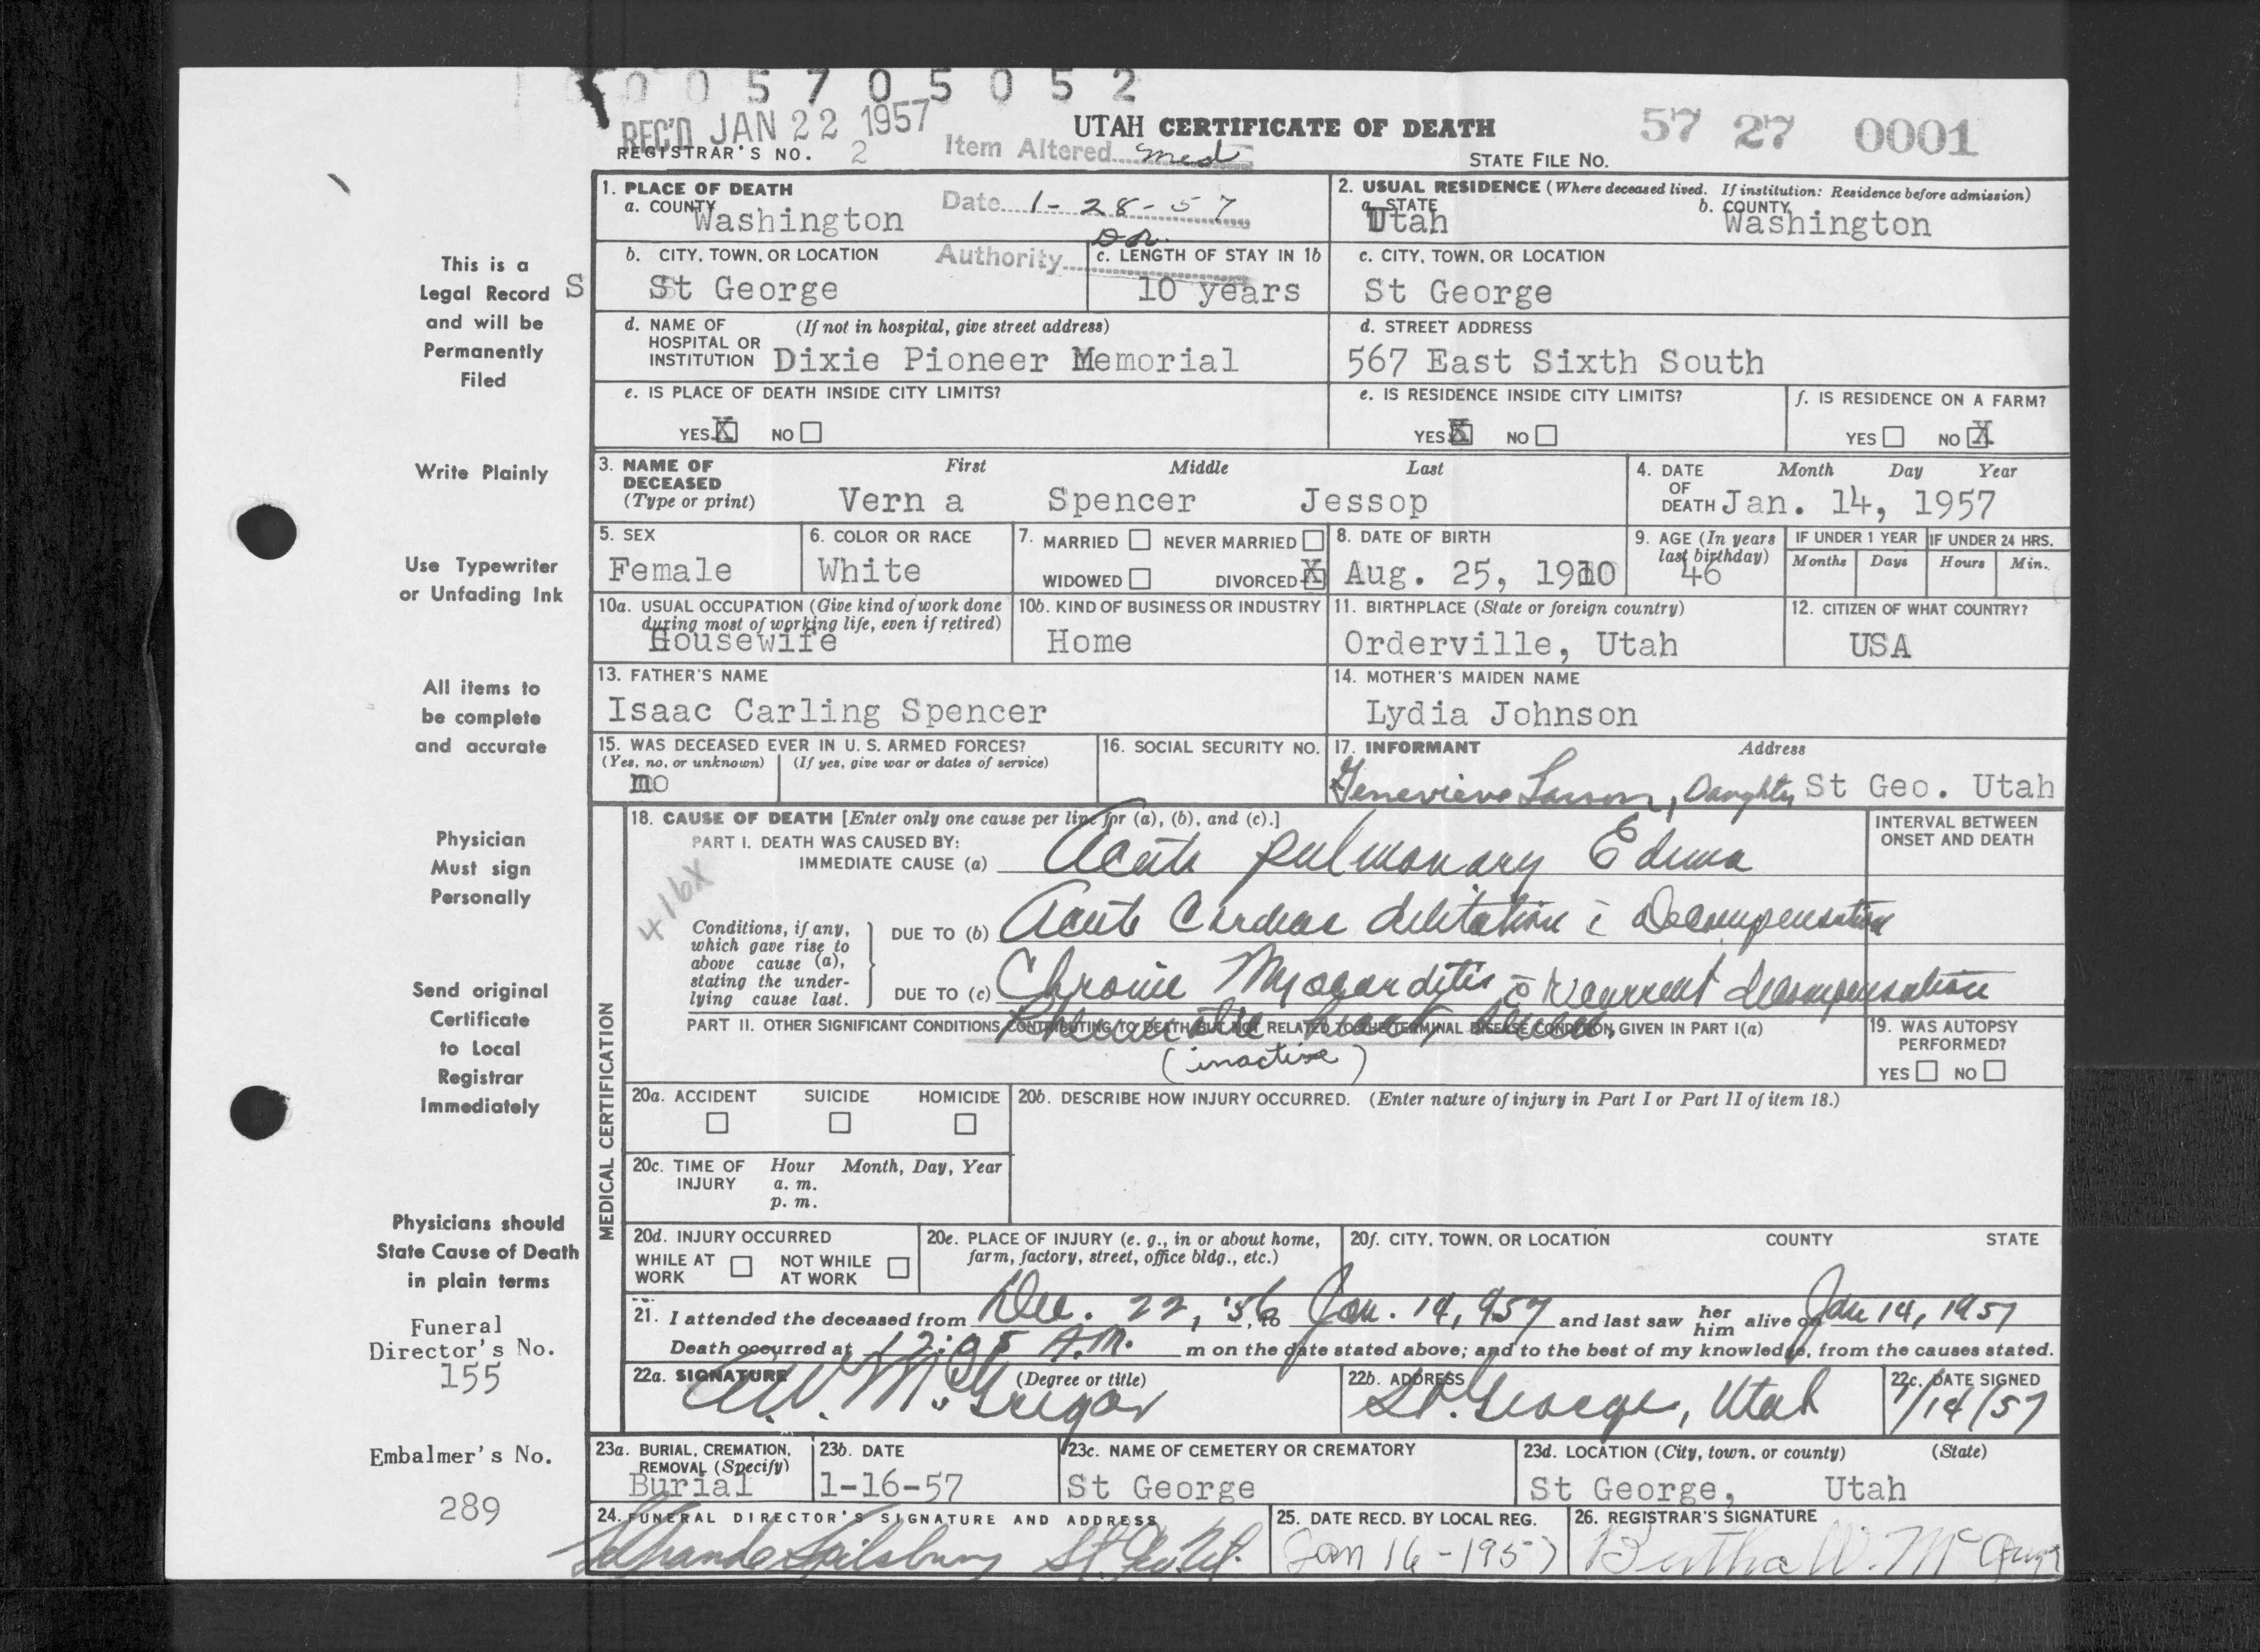 0 0 5 7 0 5 0 5 2
REC'D JAN 22 1957
UTAH CERTIFICATE OF DEATH
57 27 0001
REGISTRAR'S NO. 2
Item Altered med
STATE FILE NO.
1. PLACE OF DEATH
a. COUNTY
Washington
Date 1-28-57
2. USUAL RESIDENCE (Where deceased lived. If institution: Residence before admission)
a. STATE
Utah
b. COUNTY
Washington
b. CITY, TOWN, OR LOCATION
St George
Authority DR.
c. LENGTH OF STAY IN 1b
10 years
c. CITY, TOWN, OR LOCATION
St George
d. NAME OF HOSPITAL OR INSTITUTION
(If not in hospital, give street address)
Dixie Pioneer Memorial
d. STREET ADDRESS
567 East Sixth South
e. IS PLACE OF DEATH INSIDE CITY LIMITS?
YES X NO
e. IS RESIDENCE INSIDE CITY LIMITS?
YES X NO
f. IS RESIDENCE ON A FARM?
YES NO X
3. NAME OF DECEASED
(Type or print)
First Middle Last
Vern a Spencer Jessop
4. DATE OF DEATH
Month Day Year
Jan. 14, 1957
5. SEX
Female
6. COLOR OR RACE
White
7. MARRIED NEVER MARRIED
WIDOWED DIVORCED X
8. DATE OF BIRTH
Aug. 25, 1910
9. AGE (In years last birthday)
46
IF UNDER 1 YEAR
Months Days
IF UNDER 24 HRS.
Hours Min.
10a. USUAL OCCUPATION (Give kind of work done during most of working life, even if retired)
Housewife
10b. KIND OF BUSINESS OR INDUSTRY
Home
11. BIRTHPLACE (State or foreign country)
Orderville, Utah
12. CITIZEN OF WHAT COUNTRY?
USA
13. FATHER'S NAME
Isaac Carling Spencer
14. MOTHER'S MAIDEN NAME
Lydia Johnson
15. WAS DECEASED EVER IN U. S. ARMED FORCES?
(Yes, no, or unknown) (If yes, give war or dates of service)
no
16. SOCIAL SECURITY NO.
17. INFORMANT Address
Genevieve Larson, Daughter St Geo. Utah
MEDICAL CERTIFICATION
18. CAUSE OF DEATH [Enter only one cause per line for (a), (b), and (c).]
PART I. DEATH WAS CAUSED BY:
IMMEDIATE CAUSE (a) Acute pulmonary Edema
INTERVAL BETWEEN ONSET AND DEATH
416X
Conditions, if any, which gave rise to above cause (a), stating the underlying cause last.
DUE TO (b) Acute Cardiac dilitation c̄ Decompensation
DUE TO (c) Chronic Myocarditis c̄ recurrent decompensation
Rheumatic heart disease
PART II. OTHER SIGNIFICANT CONDITIONS CONTRIBUTING TO DEATH BUT NOT RELATED TO THE TERMINAL DISEASE CONDITION GIVEN IN PART I(a)
(inactive)
19. WAS AUTOPSY PERFORMED?
YES NO
20a. ACCIDENT SUICIDE HOMICIDE
20b. DESCRIBE HOW INJURY OCCURRED. (Enter nature of injury in Part I or Part II of item 18.)
20c. TIME OF INJURY
Hour Month, Day, Year
a. m.
p. m.
20d. INJURY OCCURRED
WHILE AT WORK NOT WHILE AT WORK
20e. PLACE OF INJURY (e. g., in or about home, farm, factory, street, office bldg., etc.)
20f. CITY, TOWN, OR LOCATION COUNTY STATE
21. I attended the deceased from Dec. 22, '56, to Jan. 14, 957 and last saw her him alive on Jan 14, 1957
Death occurred at 12:05 A.M. m on the date stated above; and to the best of my knowledge, from the causes stated.
22a. SIGNATURE (Degree or title)
A.W. McGregor
22b. ADDRESS
St. George, Utah
22c. DATE SIGNED
1/14/57
23a. BURIAL, CREMATION, REMOVAL (Specify)
Burial
23b. DATE
1-16-57
23c. NAME OF CEMETERY OR CREMATORY
St George
23d. LOCATION (City, town, or county) (State)
St George, Utah
24. FUNERAL DIRECTOR'S SIGNATURE AND ADDRESS
25. DATE RECD. BY LOCAL REG.
Jan 16-1957
26. REGISTRAR'S SIGNATURE
Bertha W. 
This is a
Legal Record S
and will be
Permanently
Filed
Write Plainly
Use Typewriter
or Unfading Ink
All items to
be complete
and accurate
Physician
Must sign
Personally
Send original
Certificate
to Local
Registrar
Immediately
Physicians should
State Cause of Death
in plain terms
Funeral
Director's No.
155
Embalmer's No.
289